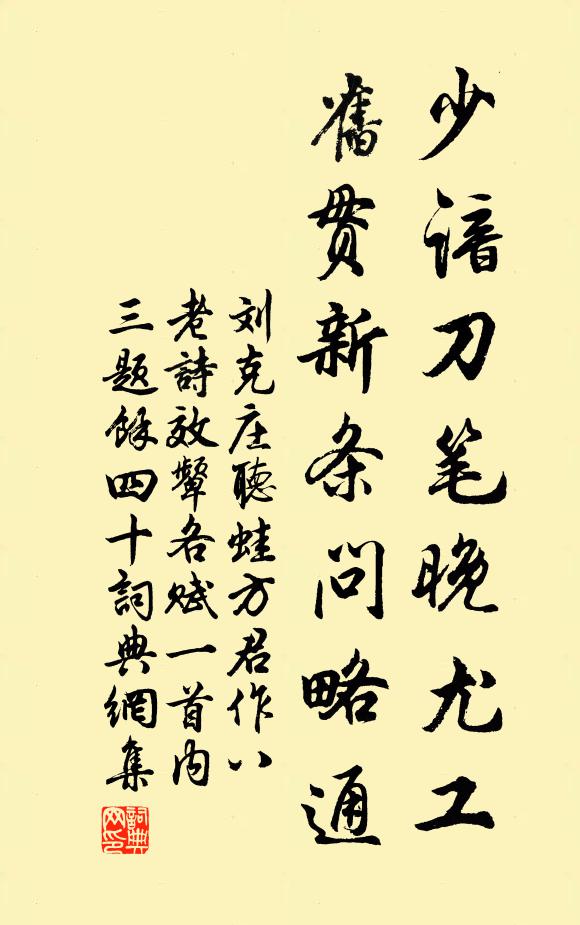 少谙刀笔晚尤工
舊贯新条问略通
刘克庄聽蛙方君作八
老詩效颦各赋一首内
三题餘四十詞典網集
詞典网印